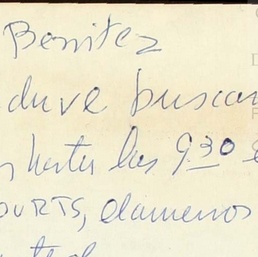 Benitez
duve buscan
hasta las 9.30
OURTS, llamenos